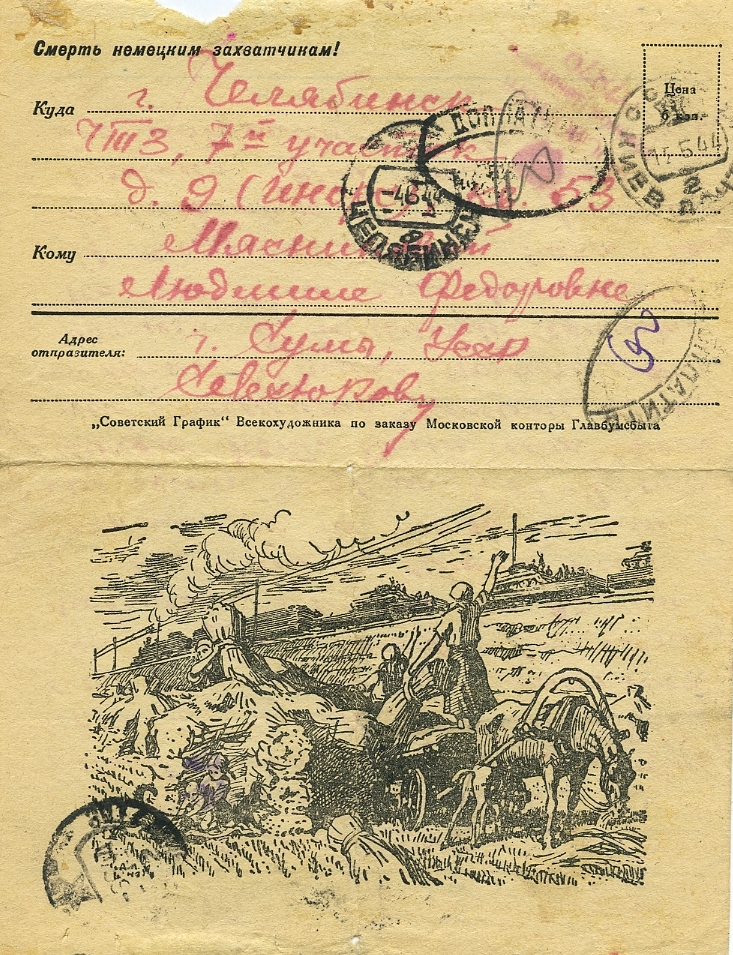 Смерть немецким захватчикам!
Цена
6 коп.
Куда г. Челябинск
ЧТЗ, 7й участок
д. 9 (Инорс) кв. 53
Кому
Людмиле Федоровне
Адрес
отправителя: г. Сумы, Укр
„Советский График“ Всекохудожника по заказу Московской конторы Главбумсбыта
ДОПЛАТИТЬ
-4644
ЧЕЛЯБИНСК
14.5.44
2
ДОПЛАТИТЬ